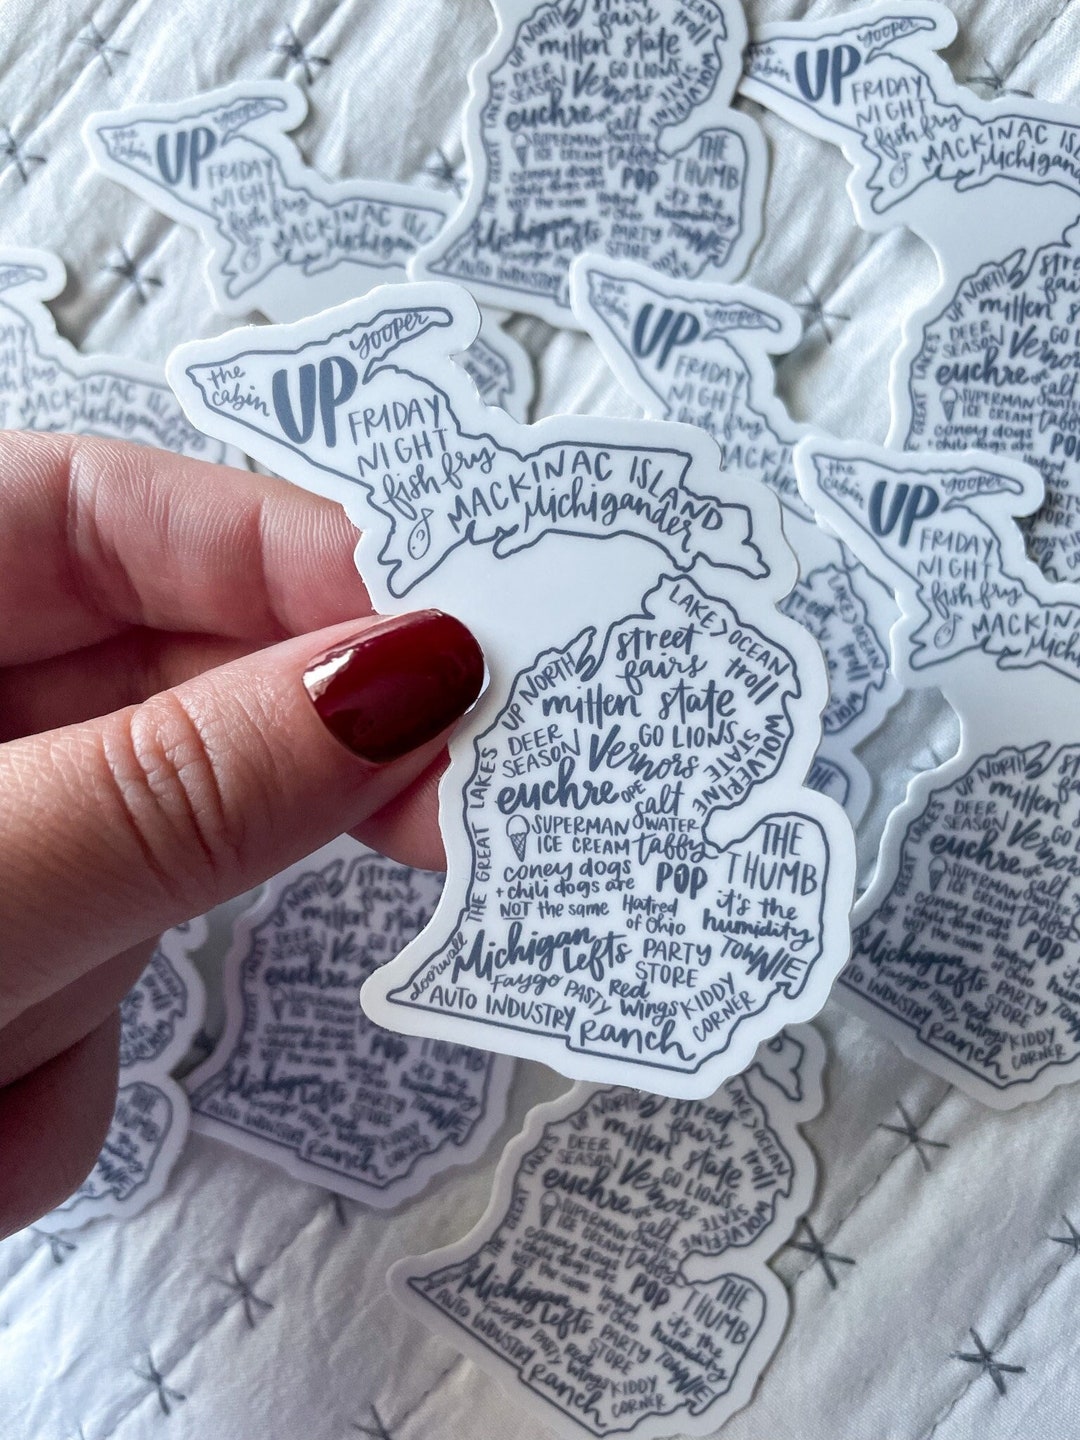 the cabin
UP
yooper
FRIDAY
NIGHT
fish fry
MACKINAC ISLAND
Michigander
LAKE > OCEAN
UP NORTH
street
fairs
troll
mitten state
DEER
SEASON
Vernors
GO LIONS
WOLVERINE
STATE
THE GREAT LAKES
euchre
OPE
salt
WATER
taffy
SUPERMAN
ICE CREAM
THE
THUMB
coney dogs
+ chili dogs are
NOT the same
POP
Hatred
of Ohio
it's the
humidity
doorwall
Michigan
Lefts
PARTY
STORE
TOWNIE
Faygo
PASTY
Red
Wings
KIDDY
CORNER
AUTO INDUSTRY
Ranch